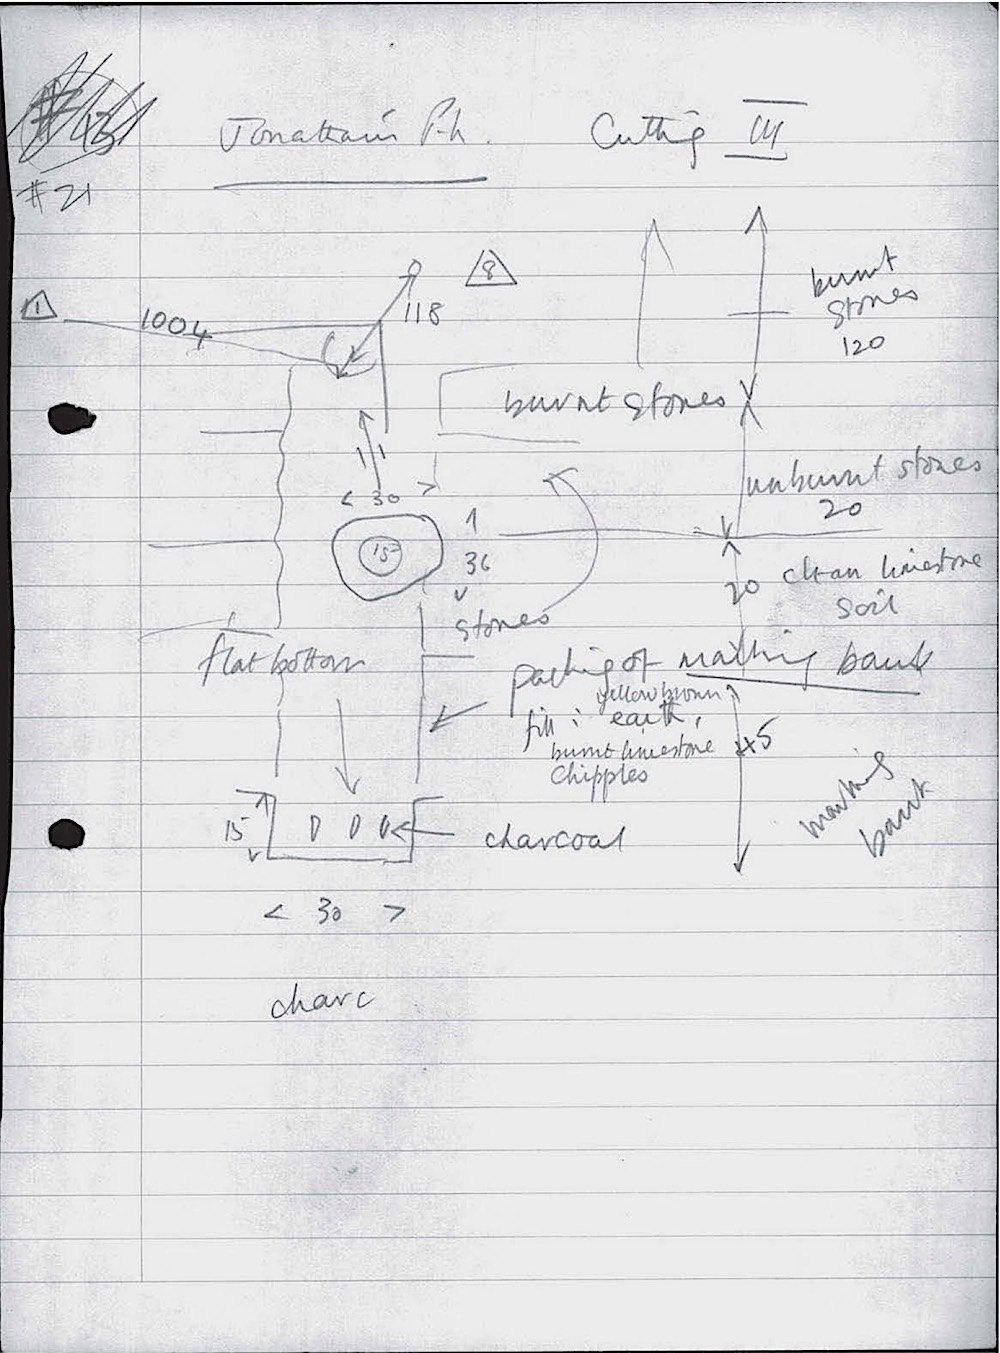 #43
#21
Jonathain P.h. Cutting III
8
1
1004
118
burnt
stones
120
burnt stones
unburnt stones
20
< 30 >
15
36
20 clean limestone
soil
stones
flat bottom
packing of marking bank
yellow brown
fill : earth,
burnt limestone
chipples
45
marking
bank
15
charcoal
< 30 >
charc